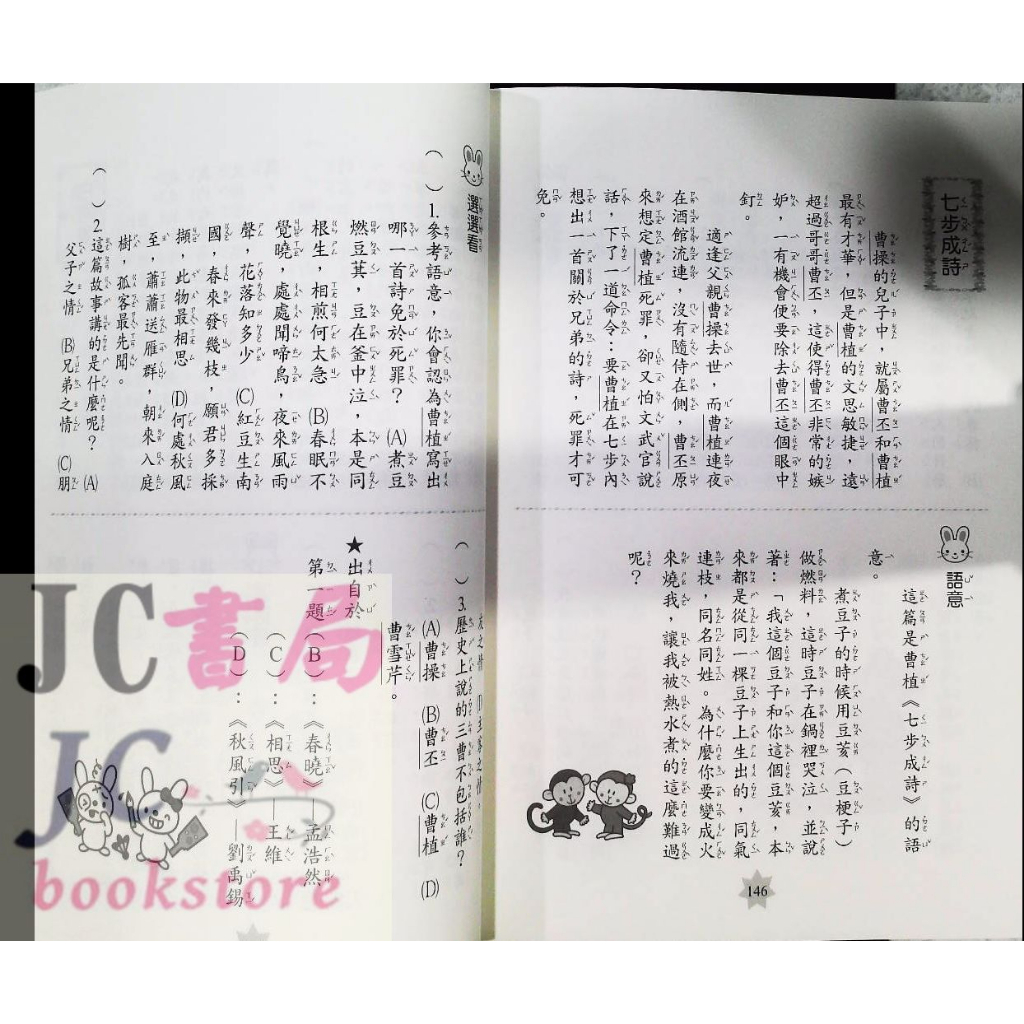 七步成詩
曹操的兒子中，就屬曹丕和曹植
最有才華，但是曹植的文思敏捷，遠
超過哥哥曹丕，這使得曹丕非常的嫉
妒，一有機會便要除去曹丕這個眼中
釘。
適逢父親曹操去世，而曹植連夜
在酒館流連，沒有隨侍在側，曹丕原
來想定曹植死罪，卻又怕文武官說
話，下了一道命令：要曹植在七步內
想出一首關於兄弟的詩，死罪才可
免。
語意
這篇是曹植《七步成詩》的語
意。
煮豆子的時候用豆萁（豆梗子）
做燃料，這時豆子在鍋裡哭泣，並說
著：「我這個豆子和你這個豆萁，本
來都是從同一棵豆子上生出的，同氣
連枝，同名同姓。為什麼你要變成火
來燒我，讓我被熱水煮的這麼難過
呢？
146
選選看
（　）1.參考語意，你會認為曹植寫出
哪一首詩免於死罪？(A)煮豆
燃豆萁，豆在釜中泣，本是同
根生，相煎何太急 (B)春眠不
覺曉，處處聞啼鳥，夜來風雨
聲，花落知多少 (C)紅豆生南
國，春來發幾枝，願君多採
擷，此物最相思 (D)何處秋風
至，蕭蕭送雁群，朝來入庭
樹，孤客最先聞。
（　）2.這篇故事講的是什麼呢？(A)
父子之情 (B)兄弟之情 (C)朋
友之情 (D)主客之情。
（　）3.歷史上說的三曹不包括誰？
(A)曹操 (B)曹丕 (C)曹植 (D)
曹雪芹。
★出自於
第一題
（B）：《春曉》—孟浩然
（C）：《相思》—王維
（D）：《秋風引》—劉禹錫
JC書局
JC
bookstore